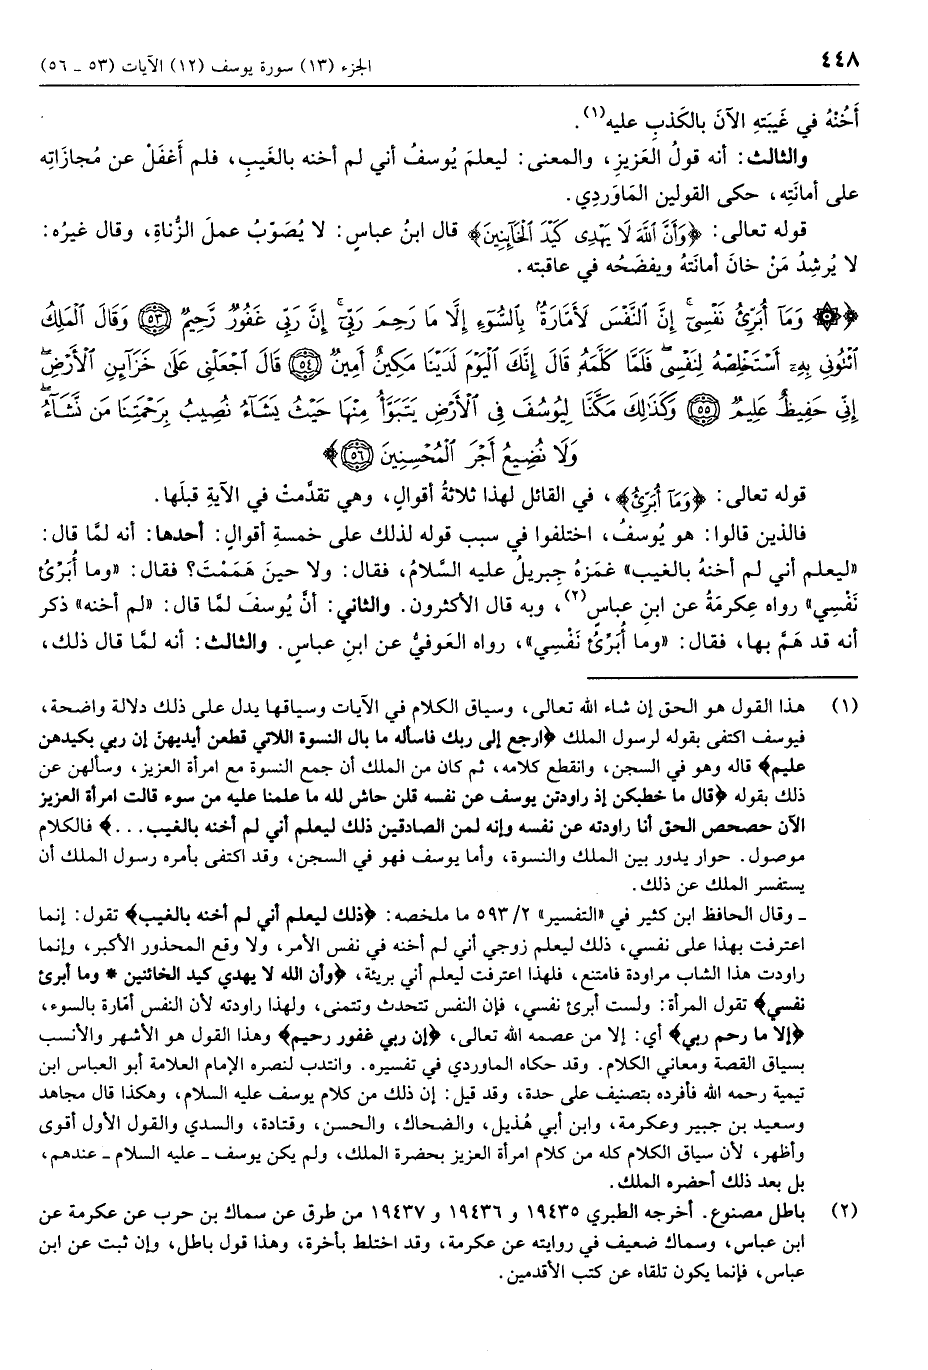 ٤٤٨
الجزء (١٣) سورة يوسف (١٢) الآيات (٥٣ ـ ٥٦)
أَخُنْهُ في غَيبَتهِ الآنَ بالكَذبِ عليه(١).
والثالث: أنه قولُ العَزيزِ، والمعنى: ليعلمَ يُوسفُ أني لم أخنه بالغَيبِ، فلم أَغفَلْ عن مُجازَاتِه
على أمانَتِه، حكى القولين المَاوَردِي.
قوله تعالى: ﴿وَأَنَّ ٱللَّهَ لَا يَهْدِى كَيْدَ ٱلْخَآئِنِينَ﴾ قال ابنُ عباسٍ: لا يُصَوِّبُ عملَ الزُّناةِ، وقال غيرُه:
لا يُرشِدُ مَنْ خانَ أمانَتهُ ويفضَحُه في عاقبته.
﴿۞ وَمَآ أُبَرِّئُ نَفْسِىٓ ۚ إِنَّ ٱلنَّفْسَ لَأَمَّارَةٌۢ بِٱلسُّوٓءِ إِلَّا مَا رَحِمَ رَبِّىٓ ۚ إِنَّ رَبِّى غَفُورٌ رَّحِيمٌ ﴿٥٣﴾ وَقَالَ ٱلْمَلِكُ
ٱئْتُونِى بِهِۦٓ أَسْتَخْلِصْهُ لِنَفْسِى ۖ فَلَمَّا كَلَّمَهُۥ قَالَ إِنَّكَ ٱلْيَوْمَ لَدَيْنَا مَكِينٌ أَمِينٌ ﴿٥٤﴾ قَالَ ٱجْعَلْنِى عَلَىٰ خَزَآئِنِ ٱلْأَرْضِ ۖ
إِنِّى حَفِيظٌ عَلِيمٌ ﴿٥٥﴾ وَكَذَٰلِكَ مَكَّنَّا لِيُوسُفَ فِى ٱلْأَرْضِ يَتَبَوَّأُ مِنْهَا حَيْثُ يَشَآءُ ۚ نُصِيبُ بِرَحْمَتِنَا مَن نَّشَآءُ ۖ
وَلَا نُضِيعُ أَجْرَ ٱلْمُحْسِنِينَ ﴿٥٦﴾﴾
قوله تعالى: ﴿وَمَآ أُبَرِّئُ﴾، في القائل لهذا ثلاثةُ أقوالٍ، وهي تقدَّمتْ في الآيةِ قبلَها.
فالذين قالوا: هو يُوسفُ، اختلفوا في سبب قوله لذلك على خمسةِ أقوالٍ: أحدها: أنه لمَّا قال:
«ليعلم أني لم أخنهُ بالغيب» غمَزهُ جبريلُ عليه السَّلامُ، فقال: ولا حينَ هَمَمْتَ؟ فقال: «وما أُبَرِّئُ
نَفْسِي» رواه عِكرمَةُ عن ابنِ عباسٍ(٢)، وبه قال الأكثرون. والثاني: أنَّ يُوسفَ لمَّا قال: «لم أخنه» ذكر
أنه قد هَمَّ بها، فقال: «وما أُبَرِّئُ نَفْسِي»، رواه العَوفيُّ عن ابنِ عباسٍ. والثالث: أنه لمَّا قال ذلك،
(١) هذا القول هو الحق إن شاء الله تعالى، وسياق الكلام في الآيات وسياقها يدل على ذلك دلالة واضحة،
فيوسف اكتفى بقوله لرسول الملك ﴿ارجع إلى ربك فاسأله ما بال النسوة اللاتي قطعن أيديهنّ إن ربي بكيدهن
عليم﴾ قاله وهو في السجن، وانقطع كلامه، ثم كان من الملك أن جمع النسوة مع امرأة العزيز، وسألهن عن
ذلك بقوله ﴿قال ما خطبكن إذ راودتن يوسف عن نفسه قلن حاش لله ما علمنا عليه من سوء قالت امرأة العزيز
الآن حصحص الحق أنا راودته عن نفسه وإنه لمن الصادقين ذلك ليعلم أني لم أخنه بالغيب...﴾ فالكلام
موصول. حوار يدور بين الملك والنسوة، وأما يوسف فهو في السجن، وقد اكتفى بأمره رسول الملك أن
يستفسر الملك عن ذلك.
ـ وقال الحافظ ابن كثير في «التفسير» ٢/ ٥٩٣ ما ملخصه: ﴿ذلك ليعلم أني لم أخنه بالغيب﴾ تقول: إنما
اعترفت بهذا على نفسي، ذلك ليعلم زوجي أني لم أخنه في نفس الأمر، ولا وقع المحذور الأكبر، وإنما
راودت هذا الشاب مراودة فامتنع، فلهذا اعترفت ليعلم أني بريئة، ﴿وأن الله لا يهدي كيد الخائنين * وما أبرئ
نفسي﴾ تقول المرأة: ولست أبرئ نفسي، فإن النفس تتحدث وتتمنى، ولهذا راودته لأن النفس أمّارة بالسوء،
﴿إلا ما رحم ربي﴾ أي: إلا من عصمه الله تعالى، ﴿إن ربي غفور رحيم﴾ وهذا القول هو الأشهر والأنسب
بسياق القصة ومعاني الكلام. وقد حكاه الماوردي في تفسيره. وانتدب لنصره الإمام العلامة أبو العباس ابن
تيمية رحمه الله فأفرده بتصنيف على حدة، وقد قيل: إن ذلك من كلام يوسف عليه السلام، وهكذا قال مجاهد
وسعيد بن جبير وعكرمة، وابن أبي هُذيل، والضحاك، والحسن، وقتادة، والسدي والقول الأول أقوى
وأظهر، لأن سياق الكلام كله من كلام امرأة العزيز بحضرة الملك، ولم يكن يوسف ـ عليه السلام ـ عندهم،
بل بعد ذلك أحضره الملك.
(٢) باطل مصنوع. أخرجه الطبري ١٩٤٣٥ و ١٩٤٣٦ و ١٩٤٣٧ من طرق عن سماك بن حرب عن عكرمة عن
ابن عباس، وسماك ضعيف في روايته عن عكرمة، وقد اختلط بأخرة، وهذا قول باطل، وإن ثبت عن ابن
عباس، فإنما يكون تلقاه عن كتب الأقدمين.